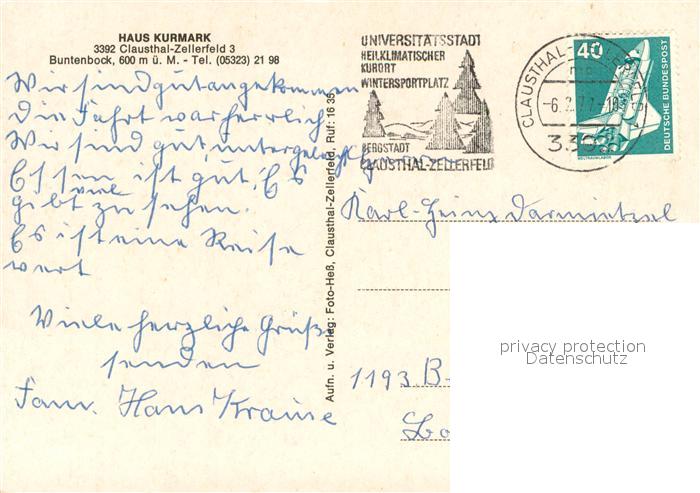 HAUS KURMARK
3392 Clausthal-Zellerfeld 3
Buntenbock, 600 m ü. M. - Tel. (05323) 21 98
Wir sind gut angekommen
die Fahrt war herrlich
Wir sind gut untergebracht
Essen ist gut, Es
gibt viel zu sehen.
Es ist eine Reise
wert
Viele herzliche Grüße
senden
Fam. Hans Krause
Aufn. u. Verlag: Foto-Heß, Clausthal-Zellerfeld, Ruf: 16 35
UNIVERSITÄTSSTADT
HEILKLIMATISCHER
KURORT
WINTERSPORTPLATZ
BERGSTADT
CLAUSTHAL-ZELLERFELD
CLAUSTHAL-ZELLERFELD
-6.2.77-18
3392
40
DEUTSCHE BUNDESPOST
WELTRAUMLABOR
Karl-Heinz Darmietzel
1193 B-
privacy protection
Datenschutz